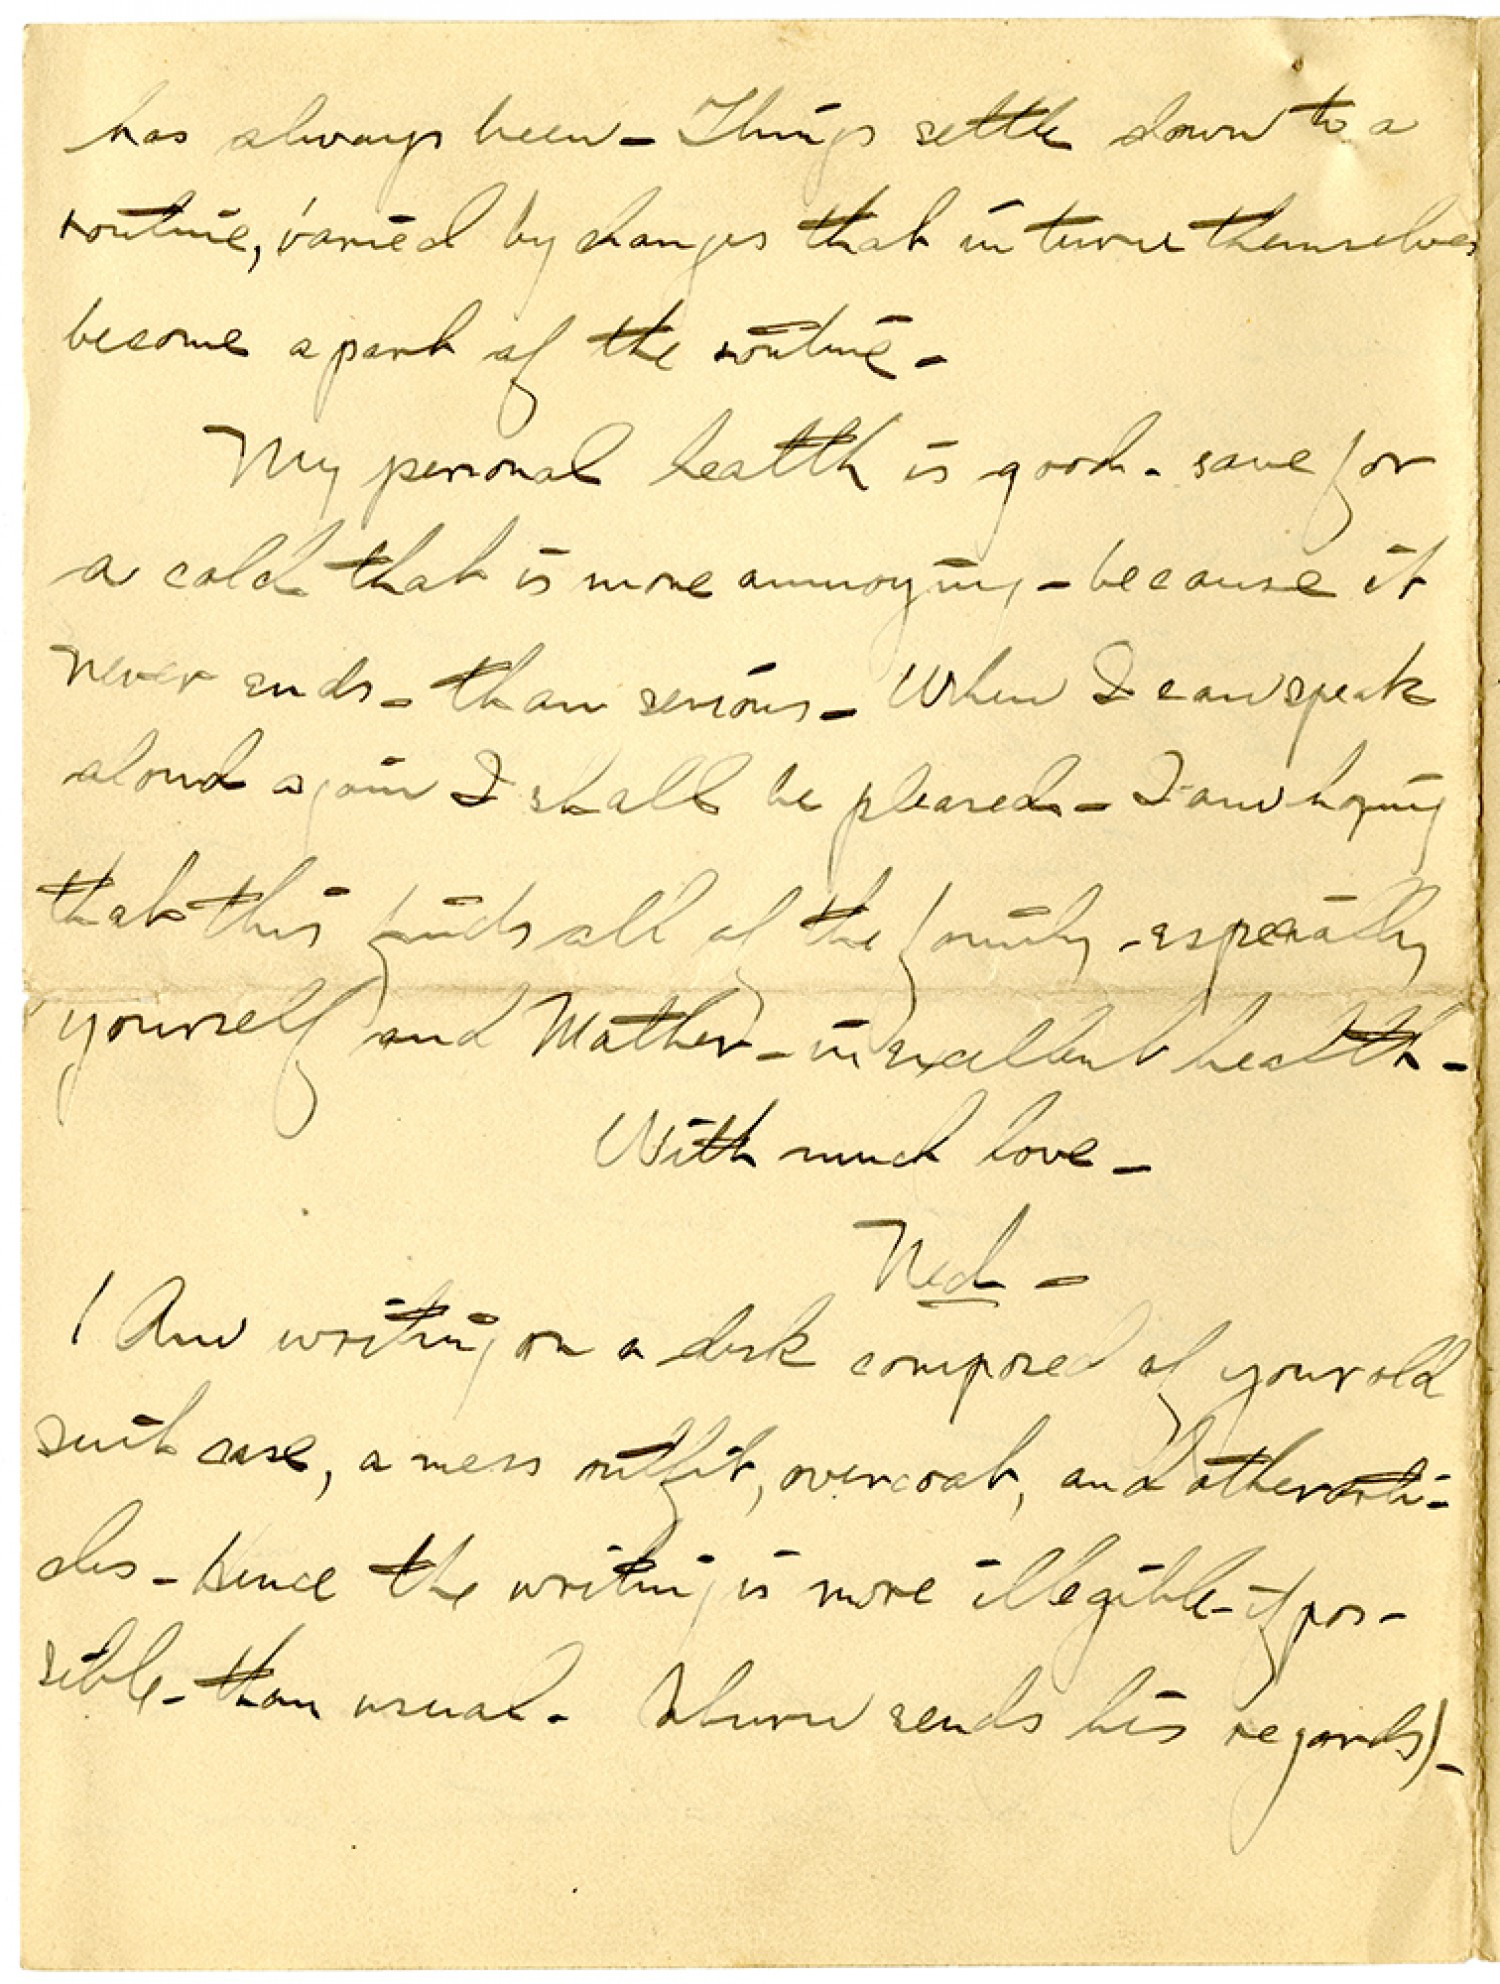 has always been – Things settle down to a
routine, varied by changes that in turn themselves
become a part of the routine –
My personal health is good – save for
a cold that is more annoying – because it
never ends – than serious – When I can speak
aloud again I shall be pleased – I am hoping
that this finds all of the family – especially
yourself and Mother – in excellent health –
With much love –
Ned –
(Am writing on a desk composed of your old
suit case, a mess outfit, overcoat, and other arti-
cles – Hence the writing is more illegible – if pos-
sible – than usual – sends his regards) –